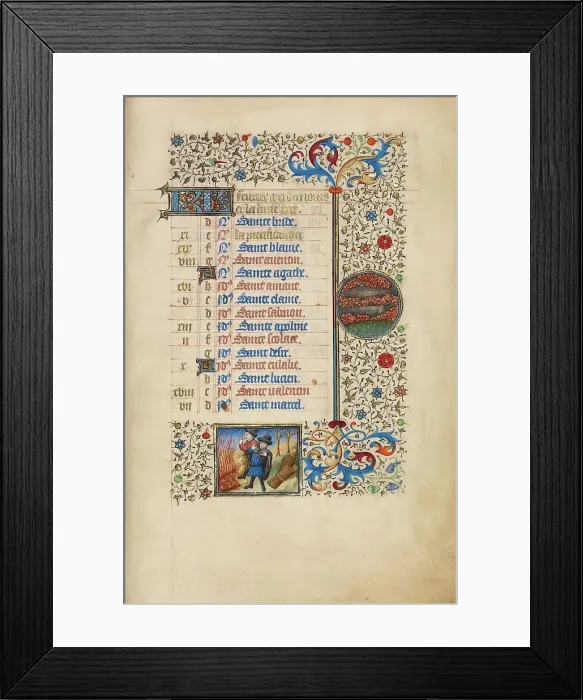 d N Sainte bride.
xi e N
xix f N Saint blaise.
viii g N Saint auentin.
A N Sainte agathe.
xvi b id Saint amant.
v c id Sainte elaine.
d id Saint salmon.
xiii e id Sainte apoline
ii f id Sainte scolace.
g id Saint desir.
x A id Sainte eulalie.
b id Saint lucien.
xviii c id Saint ualentin
vii d Saint marcel.